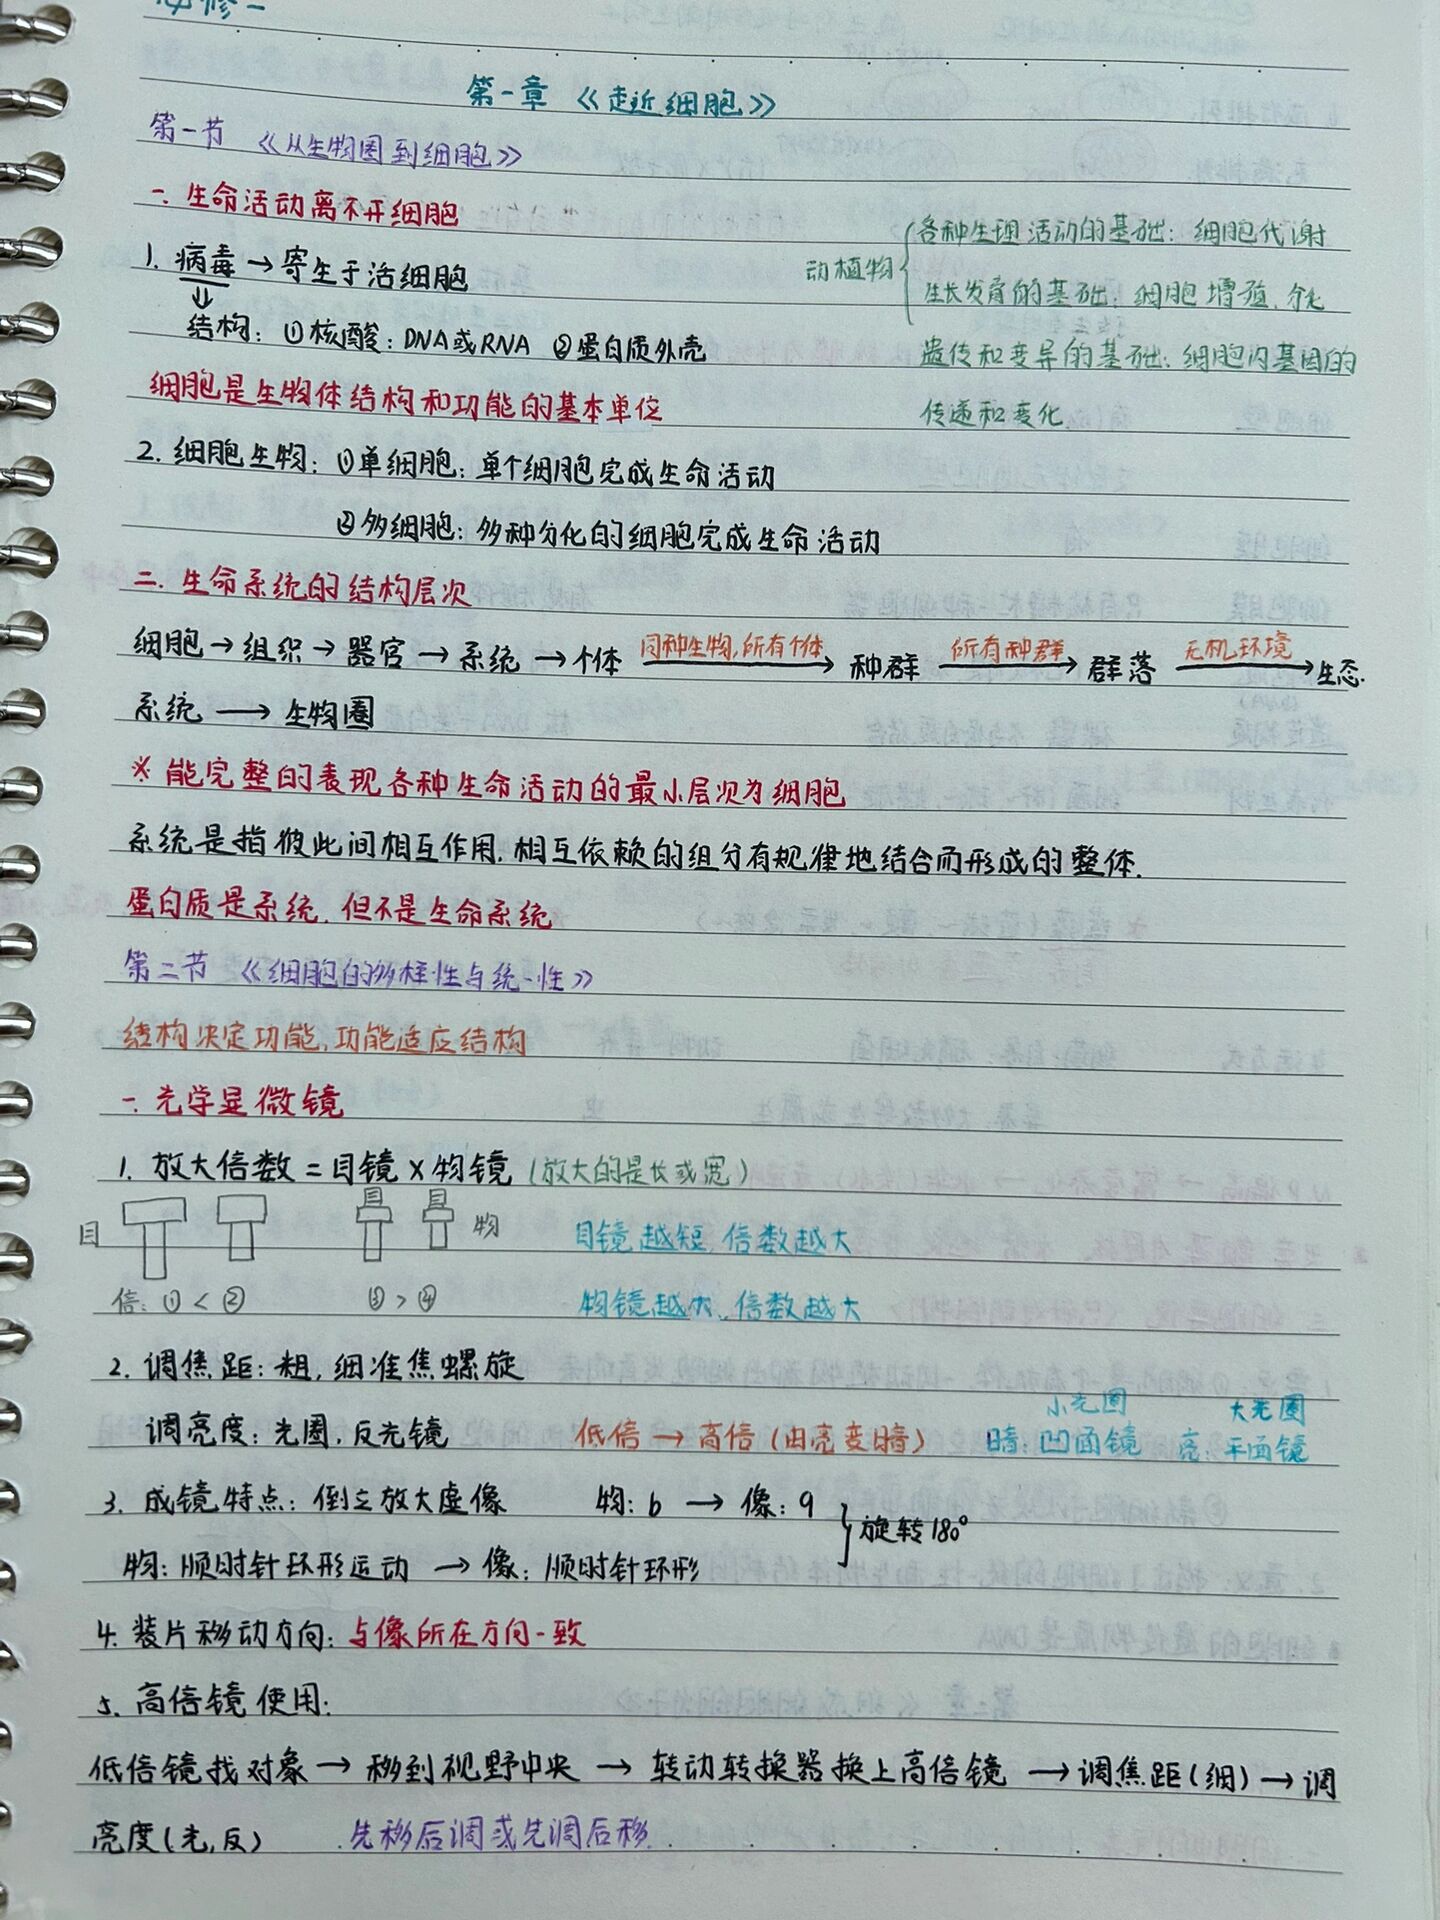 必修一
第一章 《走近细胞》
第一节 《从生物圈到细胞》
一. 生命活动离不开细胞
1. 病毒→寄生于活细胞
结构: ①核酸: DNA或RNA ②蛋白质外壳
动植物
各种生理活动的基础: 细胞代谢
生长发育的基础: 细胞增殖、分化
遗传和变异的基础: 细胞内基因的
传递和变化
细胞是生物体结构和功能的基本单位
2. 细胞生物: ①单细胞: 单个细胞完成生命活动
②多细胞: 多种分化的细胞完成生命活动
二. 生命系统的结构层次
细胞→组织→器官→系统→个体 同种生物,所有个体→ 种群 所有种群→ 群落 无机环境→ 生态.
系统 → 生物圈
※ 能完整的表现各种生命活动的最小层次为细胞
系统是指彼此间相互作用. 相互依赖的组分有规律地结合而形成的整体.
蛋白质是系统, 但不是生命系统
第二节 《细胞的多样性与统一性》
结构决定功能, 功能适应结构
一. 光学显微镜
1. 放大倍数=目镜×物镜 (放大的是长或宽)
目 物
倍: ①<② ③>④
目镜越短, 倍数越大
物镜越大, 倍数越大
2. 调焦距: 粗, 细准焦螺旋
调亮度: 光圈, 反光镜 低倍→高倍 (由亮变暗)
小光圈 大光圈
暗: 凹面镜 亮: 平面镜
3. 成镜特点: 倒立放大虚像 物: b → 像: q
物: 顺时针环形运动 → 像: 顺时针环形
旋转180°
4. 装片移动方向: 与像所在方向一致
5. 高倍镜使用:
低倍镜找对象→移到视野中央→转动转换器换上高倍镜→调焦距(细)→调
亮度(光,反) 先移后调或先调后移